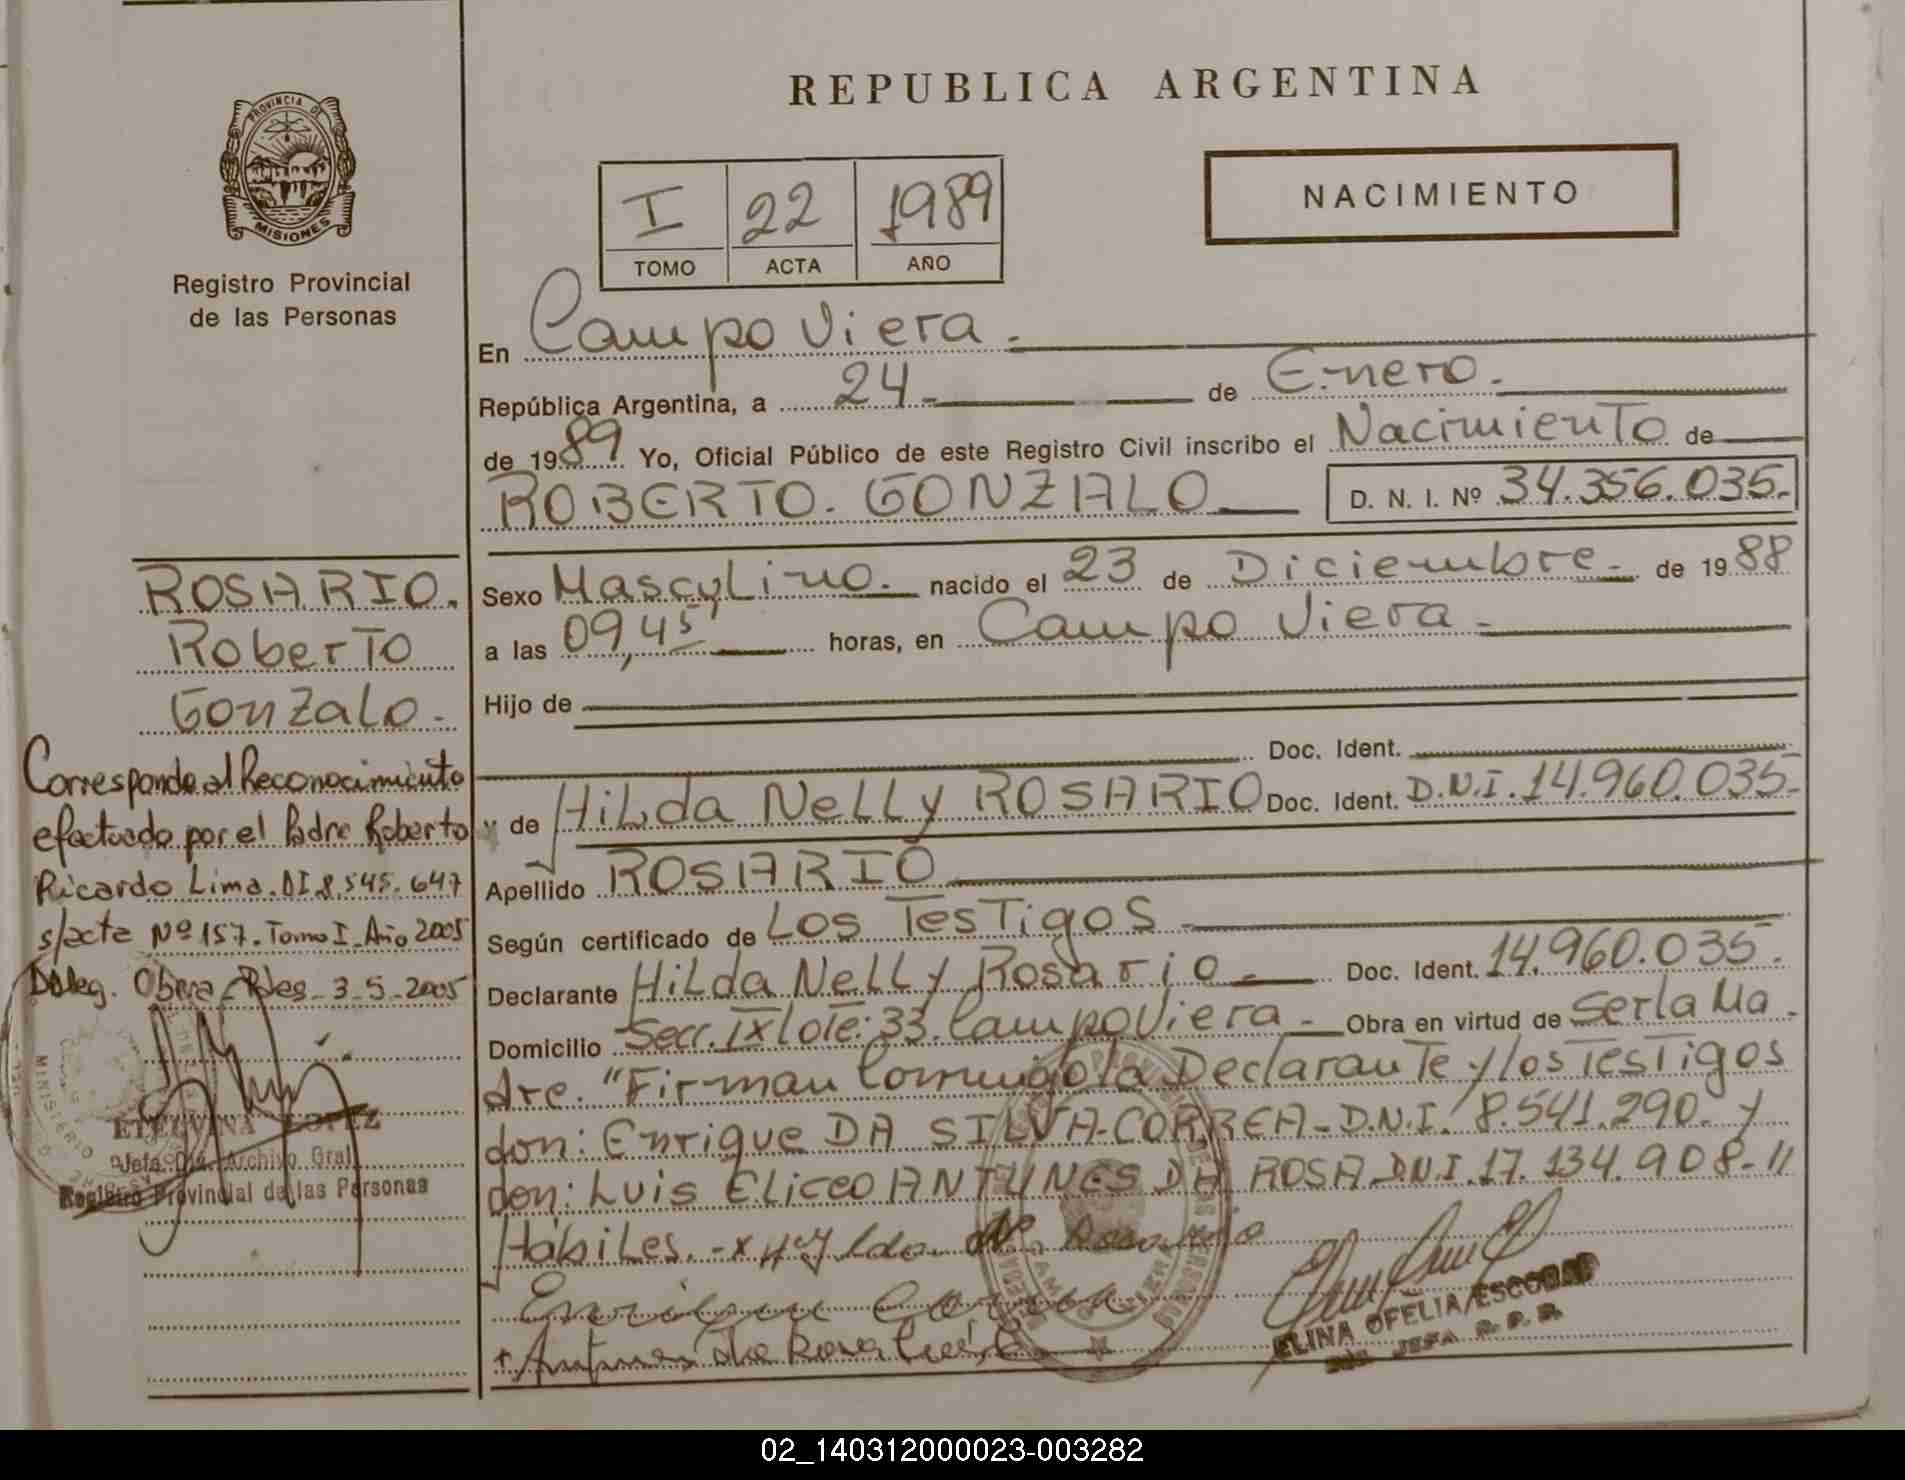 PROVINCIA DE
MISIONES
Registro Provincial
de las Personas
REPUBLICA ARGENTINA
NACIMIENTO
I 22 1989
TOMO ACTA AÑO
En Campo Viera.
República Argentina, a 24 de Enero.
de 1989 Yo, Oficial Público de este Registro Civil inscribo el Nacimiento de
ROBERTO. GONZALO D. N. I. Nº 34.356.035.
Sexo Masculino. nacido el 23 de Diciembre. de 1988
a las 09,45' horas, en Campo Viera.
Hijo de
Doc. Ident.
y de Hilda Nelly ROSARIO Doc. Ident. D.N.I. 14.960.035.
Apellido ROSARIO
Según certificado de Los Testigos
Declarante Hilda Nelly Rosario Doc. Ident. 14.960.035.
Domicilio Secc. IX lote: 33. Campo Viera. Obra en virtud de Ser la Ma
dre. "Firman Conmigo la Declarante y los Testigos
don: Enrique DA SILVA-CORREA-D.N.I. 8.541.290. y
don: Luis Eliceo ANTUNES DA ROSA D.N.I. 17.134.908-"
Hábiles.
ELINA OFELIA ESCOBAR
JEFA R. P. P.
ROSARIO.
Roberto
Gonzalo.
Corresponde al Reconocimiento
efectuado por el Padre Roberto
Ricardo Lima. DI 8.545.647
s/acta Nº 157. Tomo I. Año 2005
Deleg. Obera 3-5-2005
MINISTERIO
ETELVINA LOPEZ
Jefa Archivo Gral.
Registro Provincial de las Personas
02_140312000023-003282